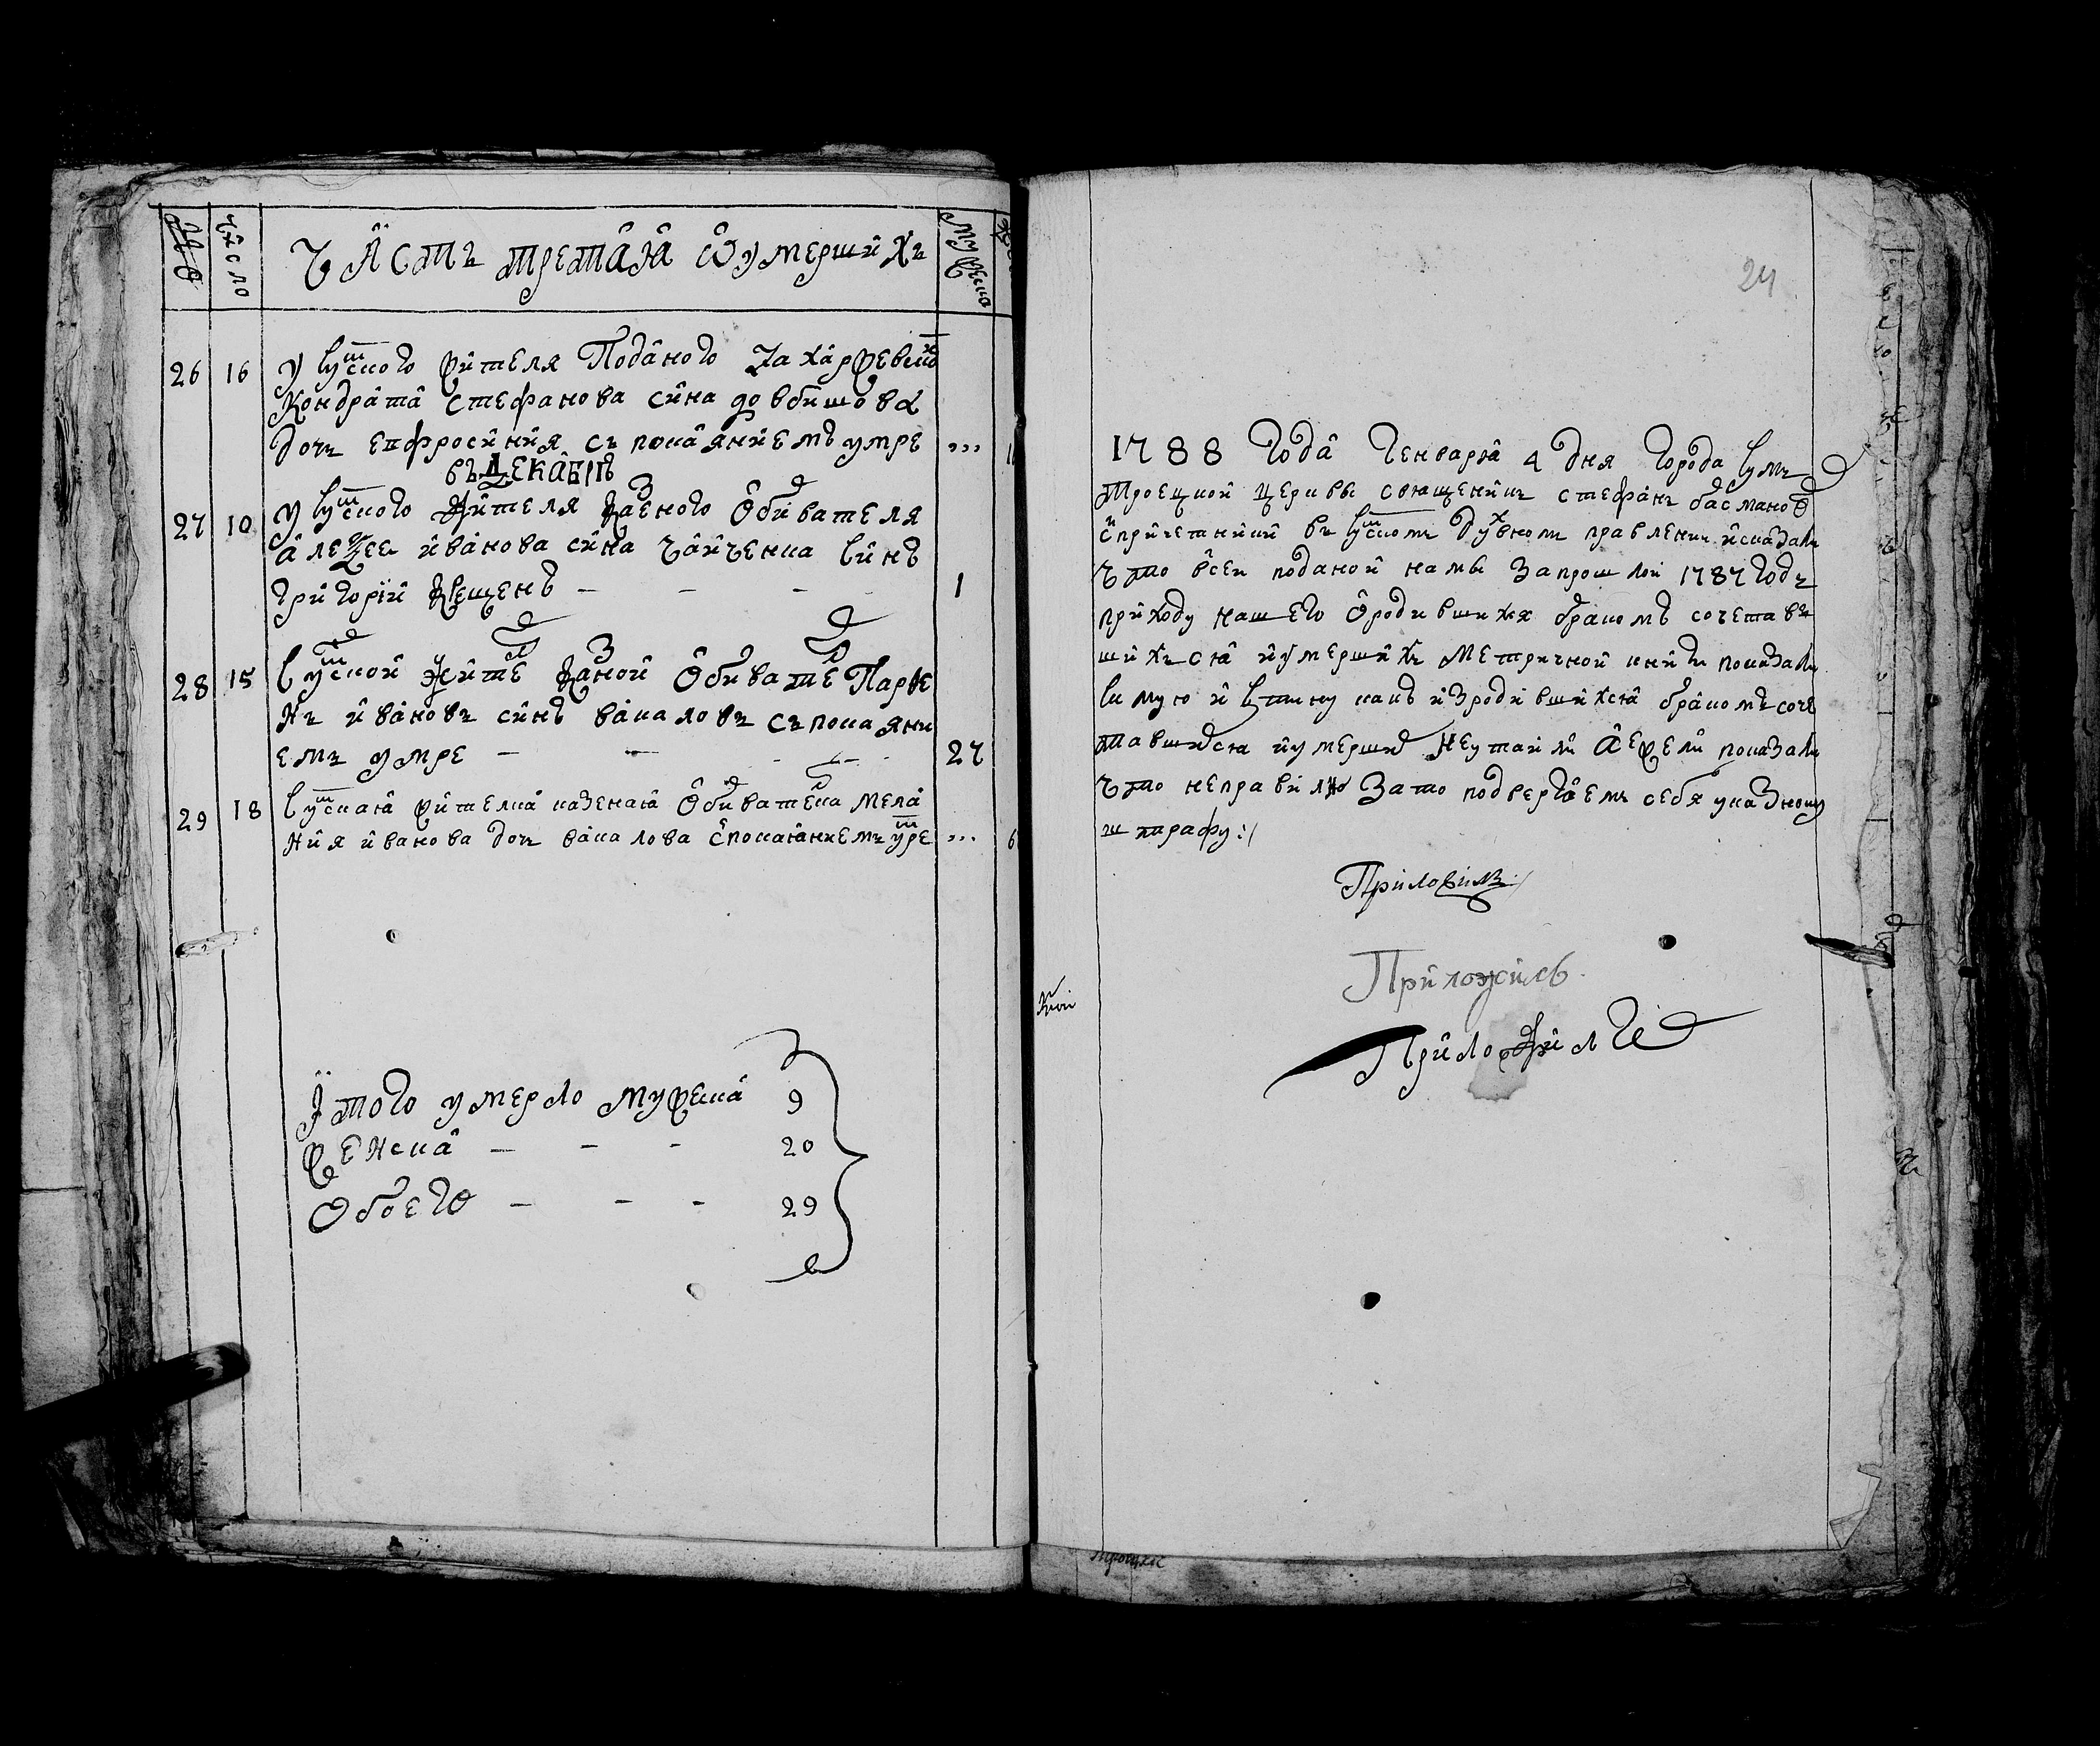 Число
Часть третая о умершихъ
мужеска
26 16 У сумского жителя поданого Захаржевско
Кондрата Стефанова сина Довбишова
дочь Епфросиния съ покаяниемъ умре ,,, 1
въ Декабрѣ
27 10 У сумского жителя казеного обивателя
Алеѯее Иванова сина Чайченка синъ
Григорий крещенъ - - - 1
28 15 Сумской жите казной обивате Парѳе
нъ Ивановъ синъ Вакаловъ съ покаяни
емъ умре - - - 27
29 18 Сумская жителка казеная обивателка Мела
ния Иванова дочь Вакалова спокаяниемъ умре ,,, 6
Итого умерло мужеска 9
женска - - - 20
Обоего - - - 29
24
1788 года генваря 4 дня города Сумъ
Троецкой церкви священикъ Стефанъ Басманов
спричетники въ сумскомъ духвномъ правлении исказали
что всеи поданой нами запрошлой 1787 годъ
приходу нашего о родившихся бракомъ сочетавъ
шихъся и умершихъ метричной книги показали
самую истину какъ изродившихся бракомъ соче
тавшихся и умерших неутаили а ежели показали
что неправилно за то подвергаемъ себя указному
штрафу:/
Приложилъ:/
Приложилъ
Приложилъ